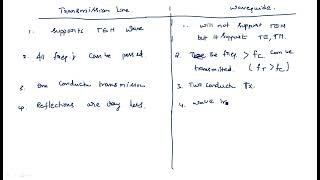 Transmission Line.
Waveguide.
1. Supports TEM wave
1. will not support TEM
but it support TE, TM.
2. All freq's can be passed.
2. The freq. > fc can be
transmitted. (fT > fc)
3. One conductr transmission
3. Two conducth Tx.
4. Reflections are very less.
4. wave is